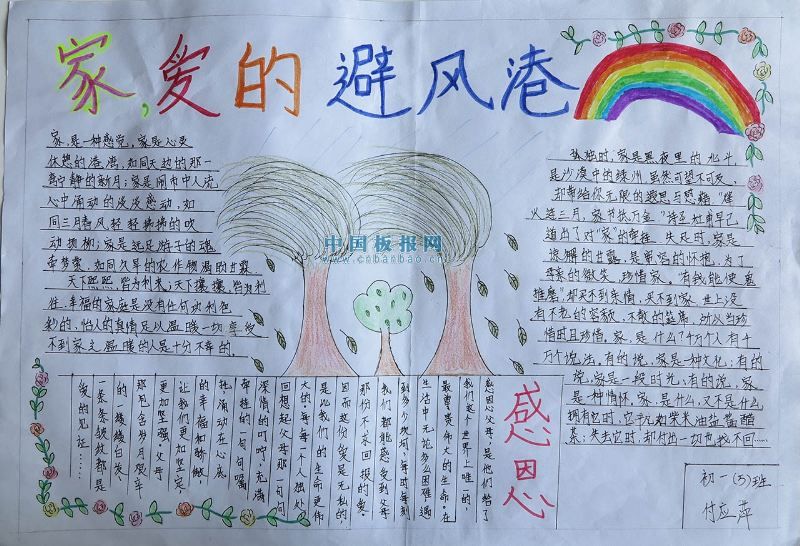 家，爱的避风港
家，是一种感觉，家是心灵
休憩的港湾，如同天边的那一
高宁静的新月；家是闹市中人流
心中涌动的淡淡感动，如
同三月春风轻轻拂拂的吹
动杨柳；家是远足游子的魂
牵梦萦，如同久旱的农作物渴的甘露
天下熙熙，皆为利来；天下攘攘，皆为利
往。幸福的家庭是没有任何功利色
彩的，怡人的真情足以温暖一切，享受
不到家之温暖的人是十分不幸的。
孤独时，家是黑夜里的北斗
是沙漠中的绿洲，虽然可望不可及，
却带给你无限的遐思与慰藉“烽
火连三月，家书抵万金”诗圣杜甫早已
道出了对“家”的牵挂。失足时，家是
谅解的甘露，是宽宏的怀抱，为了
母亲的微笑，珍惜家。“有钱能使鬼
推磨”却买不到亲情，买不到家。世上没
有不老的容颜，不散的筵席，动从当珍
惜时且珍惜。家，是什么？十万个人有十
万个说法。有的说，家是一种文化；有的
说，家是一段时光；有的说，家
是一种情怀。家是什么，又不是什么
拥有它时，它平凡如柴米油盐酱醋
茶；失去它时，却付出一切也找不回……
感恩
感恩父母，是他们给了
我们这个世界上唯一的，
最尊贵伟大的生命。在
生活中无论多么困难，遇
到多少坎坷，每时每刻
我们都能感受到父母
那份不求回报的爱。
因而这份爱是无私的，
是比我们的生命更伟
大的。每每一个人独处
回想起父母那一句句
深情的叮咛，充满
牵挂的一句句嘱
托涌动在心底
的幸福和骄傲，
让我们更加坚定，
更加坚强。父母
那包含岁月艰辛
的一缕缕白发，
一条条皱纹都是
爱的见证……
初一（3）班
付应萍
中国板报网
www.cnbanbao.cn